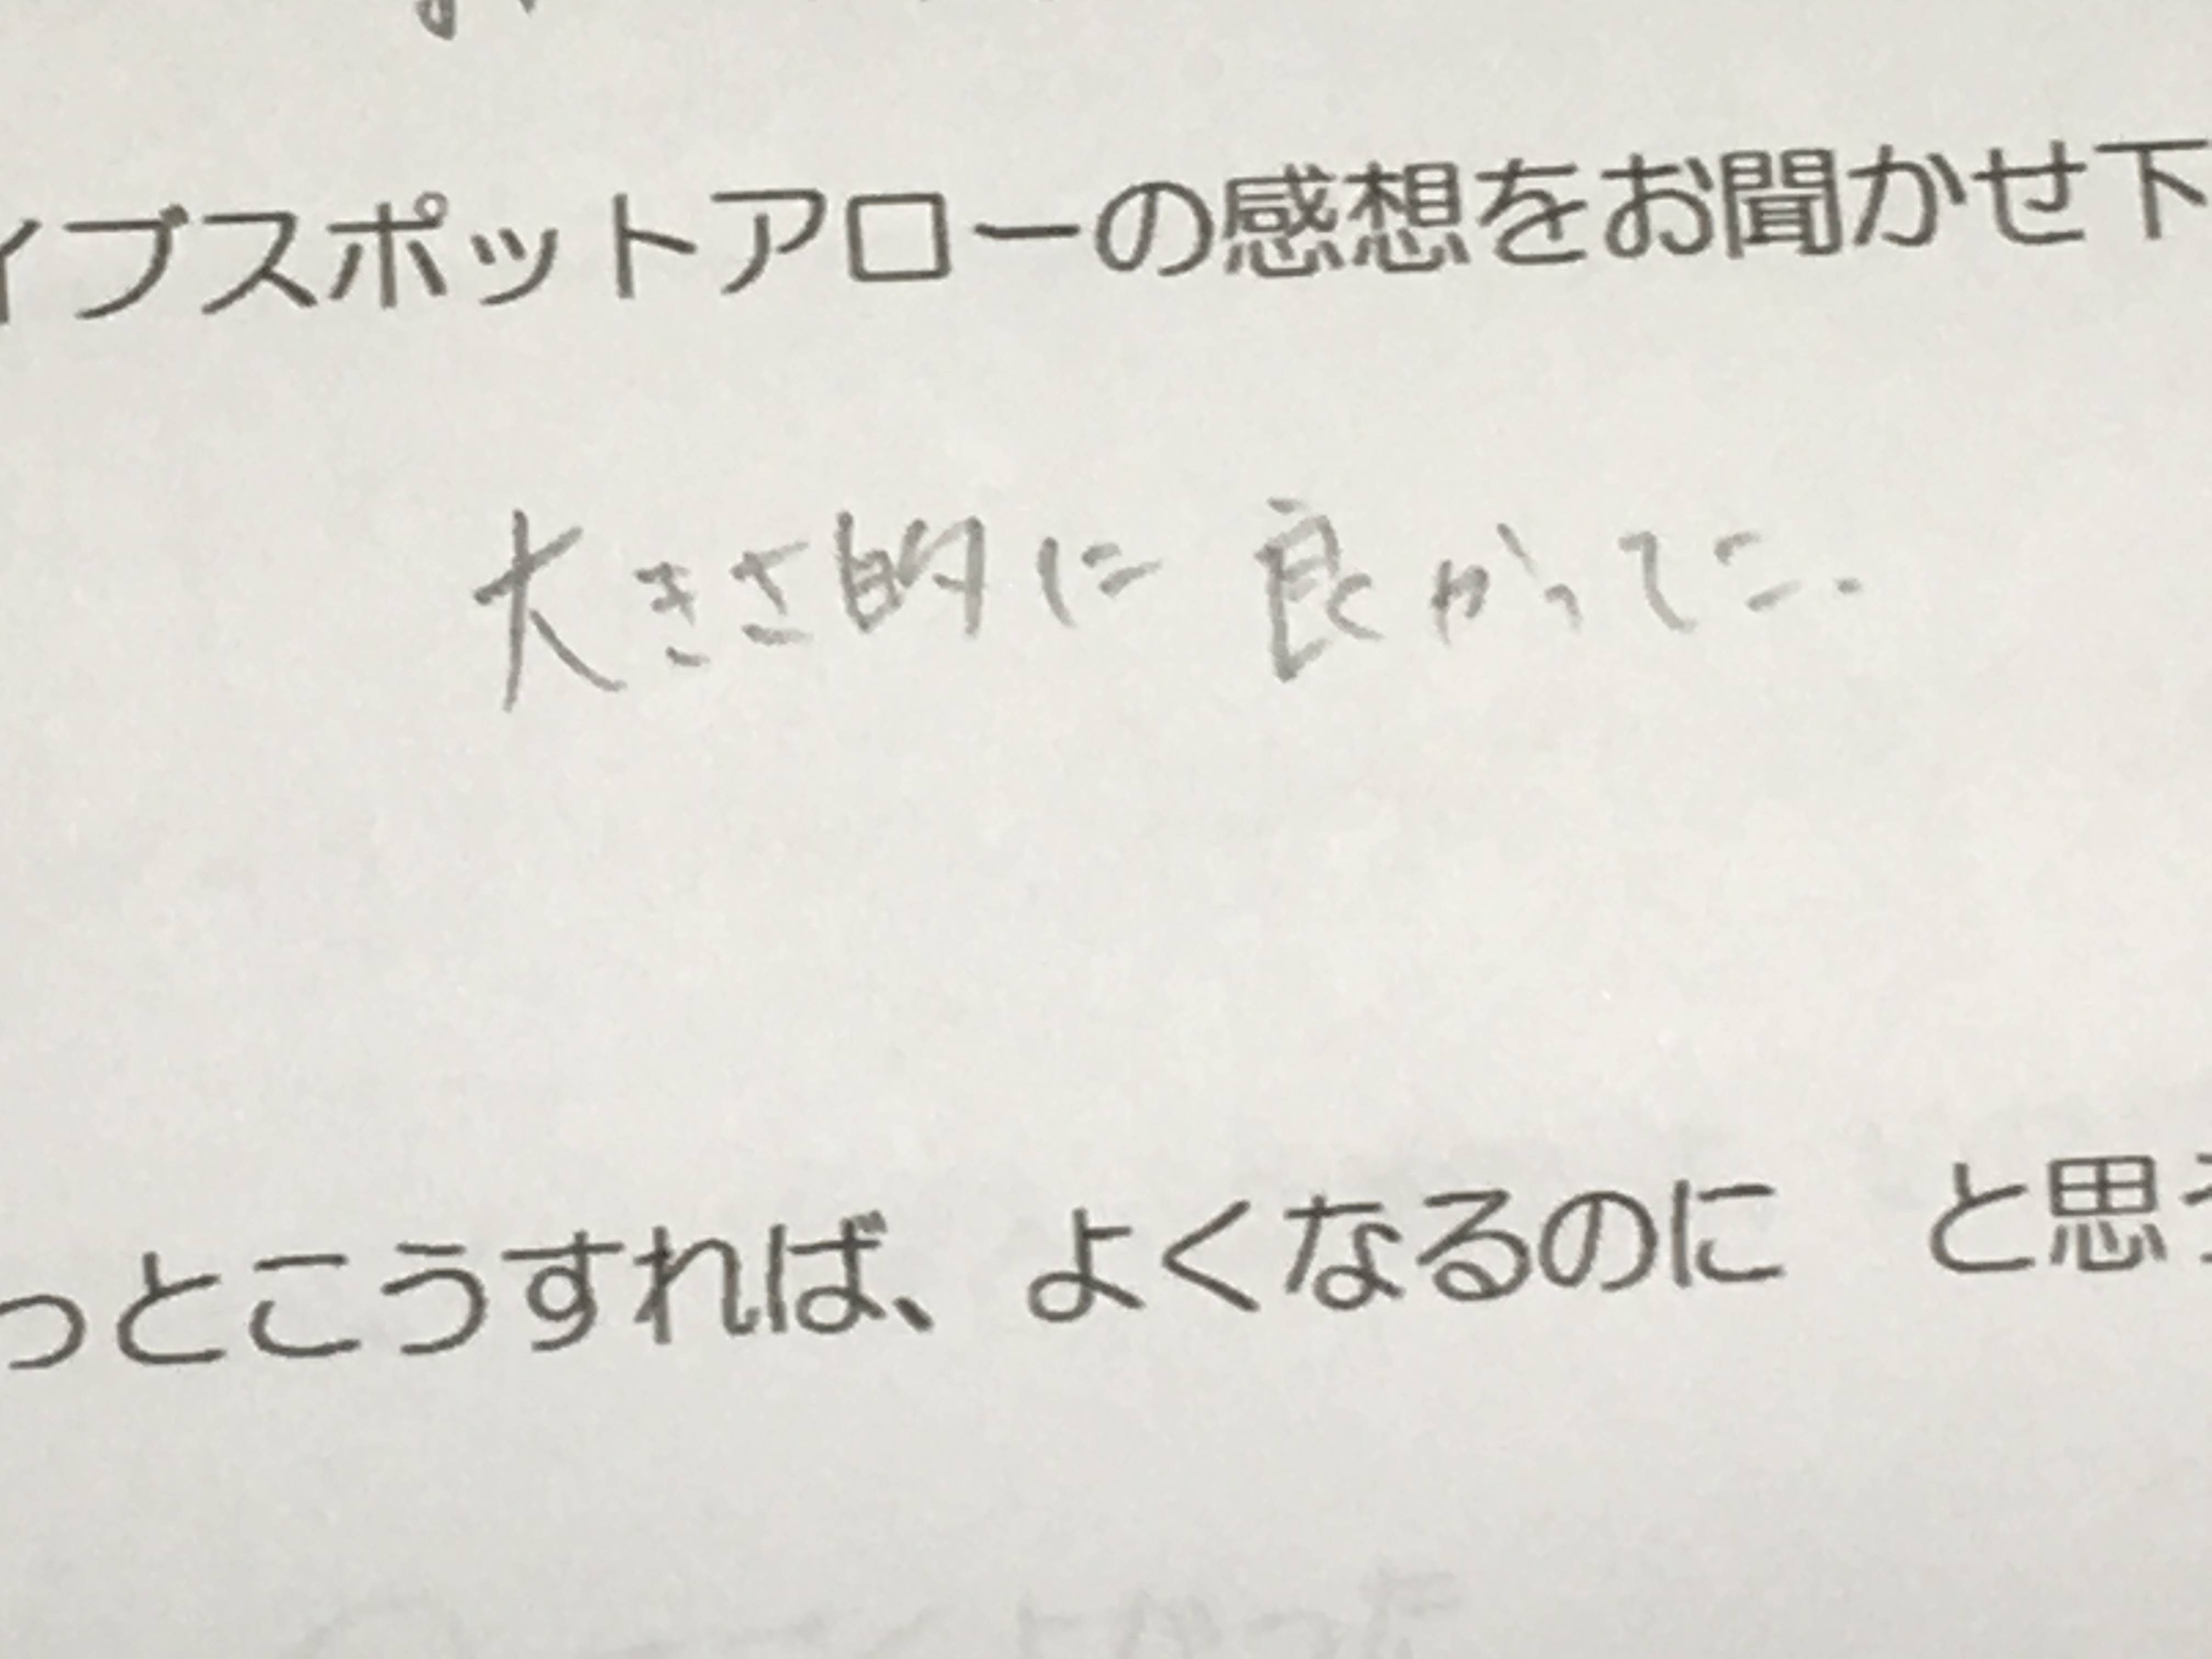 ィブスポットアローの感想をお聞かせ下
大きさ的に良かった.
っとこうすれば、よくなるのに と思う